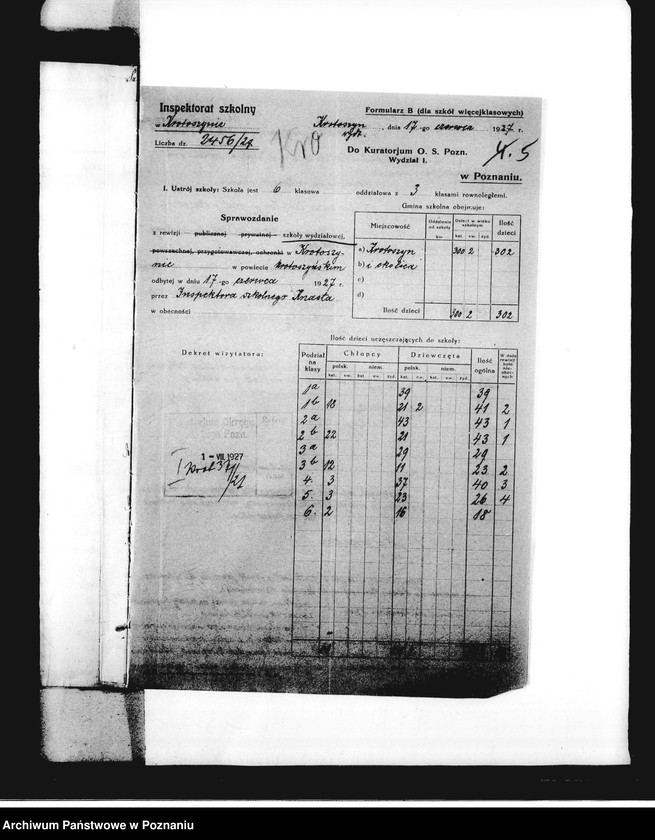 Inspektorat szkolny
w Krotoszynie
Liczba dz. 2456/27
Kro
Formularz B (dla szkół więcejklasowych)
Krotoszyn, dnia 17-go czerwca 1927 r.
Do Kuratorjum O. S. Pozn.
Wydział I.
w Poznaniu.
I. Ustrój szkoły: Szkoła jest 6 klasowa oddziałowa z 3 klasami rownoległemi.
Gmina szkolna obejmuje:
Sprawozdanie
z rewizji publicznej prywatnej szkoły wydziałowej,
powszechnej, przygotowawczej, ochronki w Krotoszy-
nie w powiecie krotoszyńskim
odbytej w dniu 17-go czerwca 1927 r.
przez Inspektora szkolnego Knasta
w obecności
Miejscowość Oddalenie od szkoły km Dzieci w wieku szkolnym kat. ew. żyd. Ilość dzieci
a) Krotoszyn 300 2 302
b) i okolica
c)
d)
Ilość dzieci 300 2 302
Ilość dzieci uczęszczających do szkoły:
Dekret wizytatora:
Podział na klasy Chłopcy Dziewczęta Ilość ogólna W dniu rewizji było nieobecnych
polsk. niem. polsk. niem.
kat. ew. kat. ew. żyd. kat. ew. kat. ew. żyd.
1a 39 39
1b 18 21 2 41 2
2a 43 43 1
2b 22 21 43 1
3a 29 29
3b 12 11 23 2
4. 3 37 40 3
5. 3 23 26 4
6. 2 16 18
1 - VII 1927
Archiwum Państwowe w Poznaniu